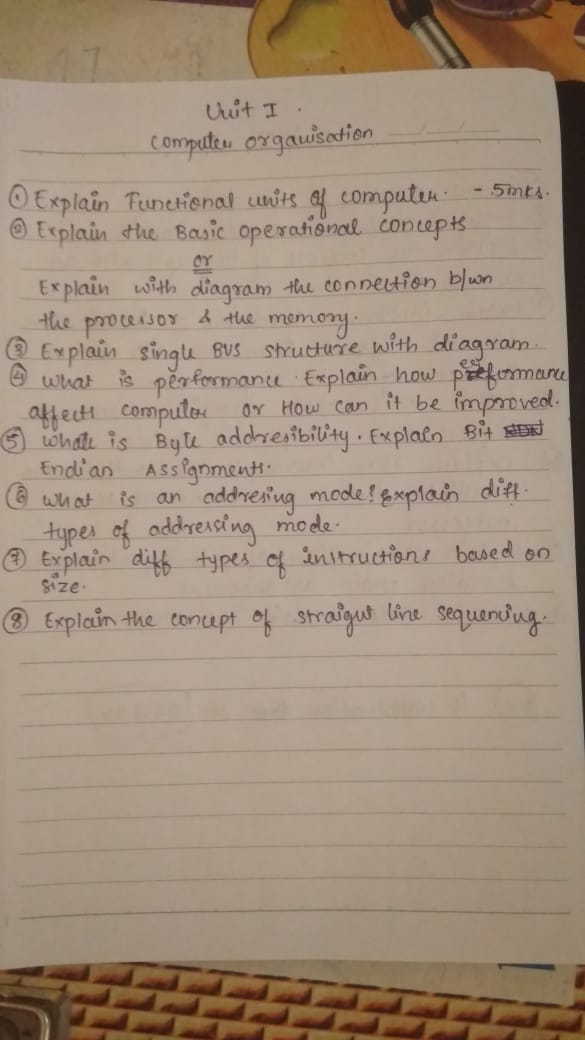 Unit I.
Computer organisation
① Explain Functional units of computer. - 5mks.
② Explain the Basic operational concepts
or
Explain with diagram the connection b/wn
the processor & the memory.
③ Explain single BUS structure with diagram.
④ What is performance. Explain how performance
affects computer or How can it be improved.
⑤ What is Byte addresibility. Explain Bit
Endian Assignments.
⑥ What is an addresing mode? Explain diff.
types of addressing mode.
⑦ Explain diff types of instructions based on
size.
⑧ Explain the concept of straigut line sequencing.